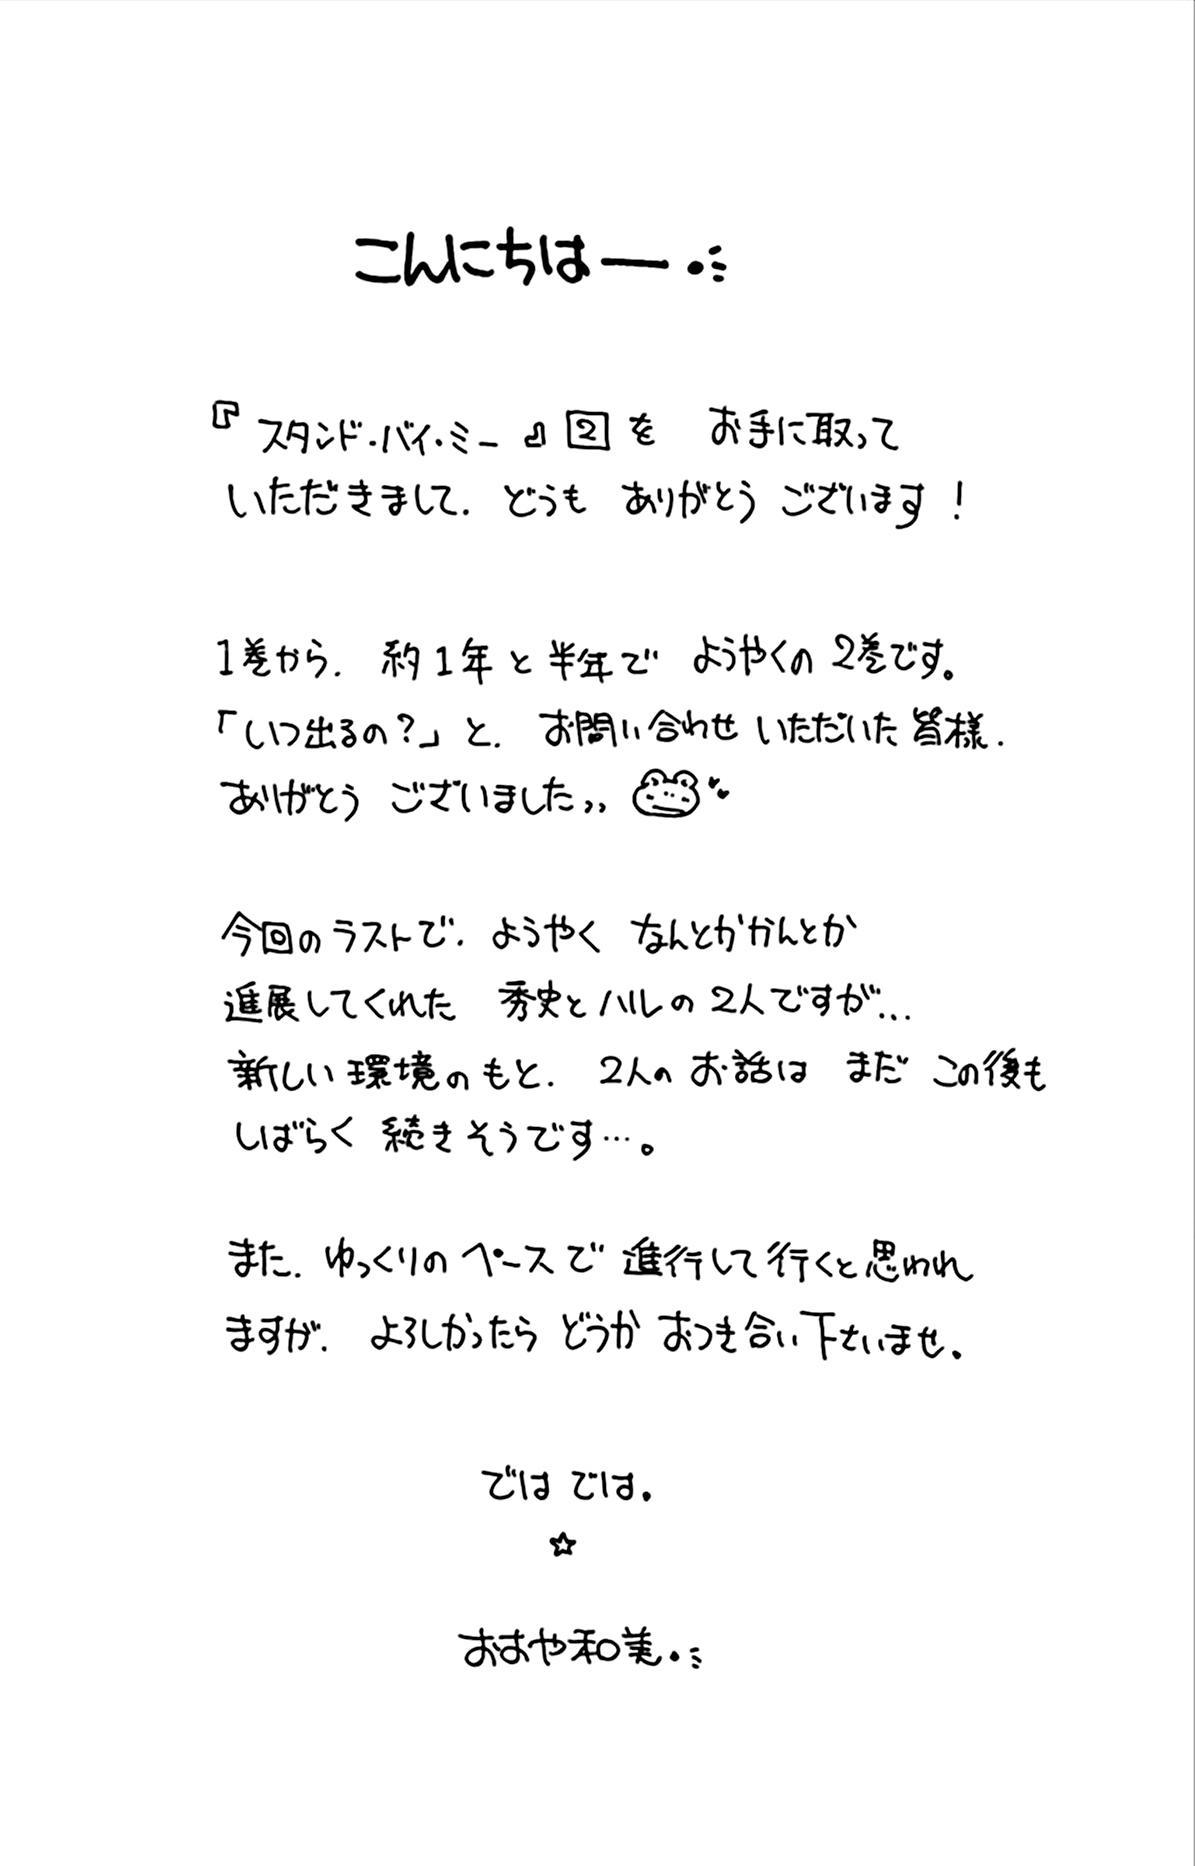 こんにちはー.
『スタンド・バイ・ミー』2を お手に取って
いただきまして. どうも ありがとう ございます!
1巻から. 約1年と半年で ようやくの 2巻です。
「いつ出るの?」と. お問い合わせ いただいた 皆様.
ありがとう ございました,,
今回のラストで. ようやく なんとかかんとか
進展してくれた 秀史とハルの 2人ですが...
新しい環境のもと. 2人の お話は まだ この後も
しばらく 続きそうです…。
また. ゆっくりの ペースで 進行して行くと思われ
ますが. よろしかったら どうか おつき合い下さいませ.
では では.
☆
おおや和美.